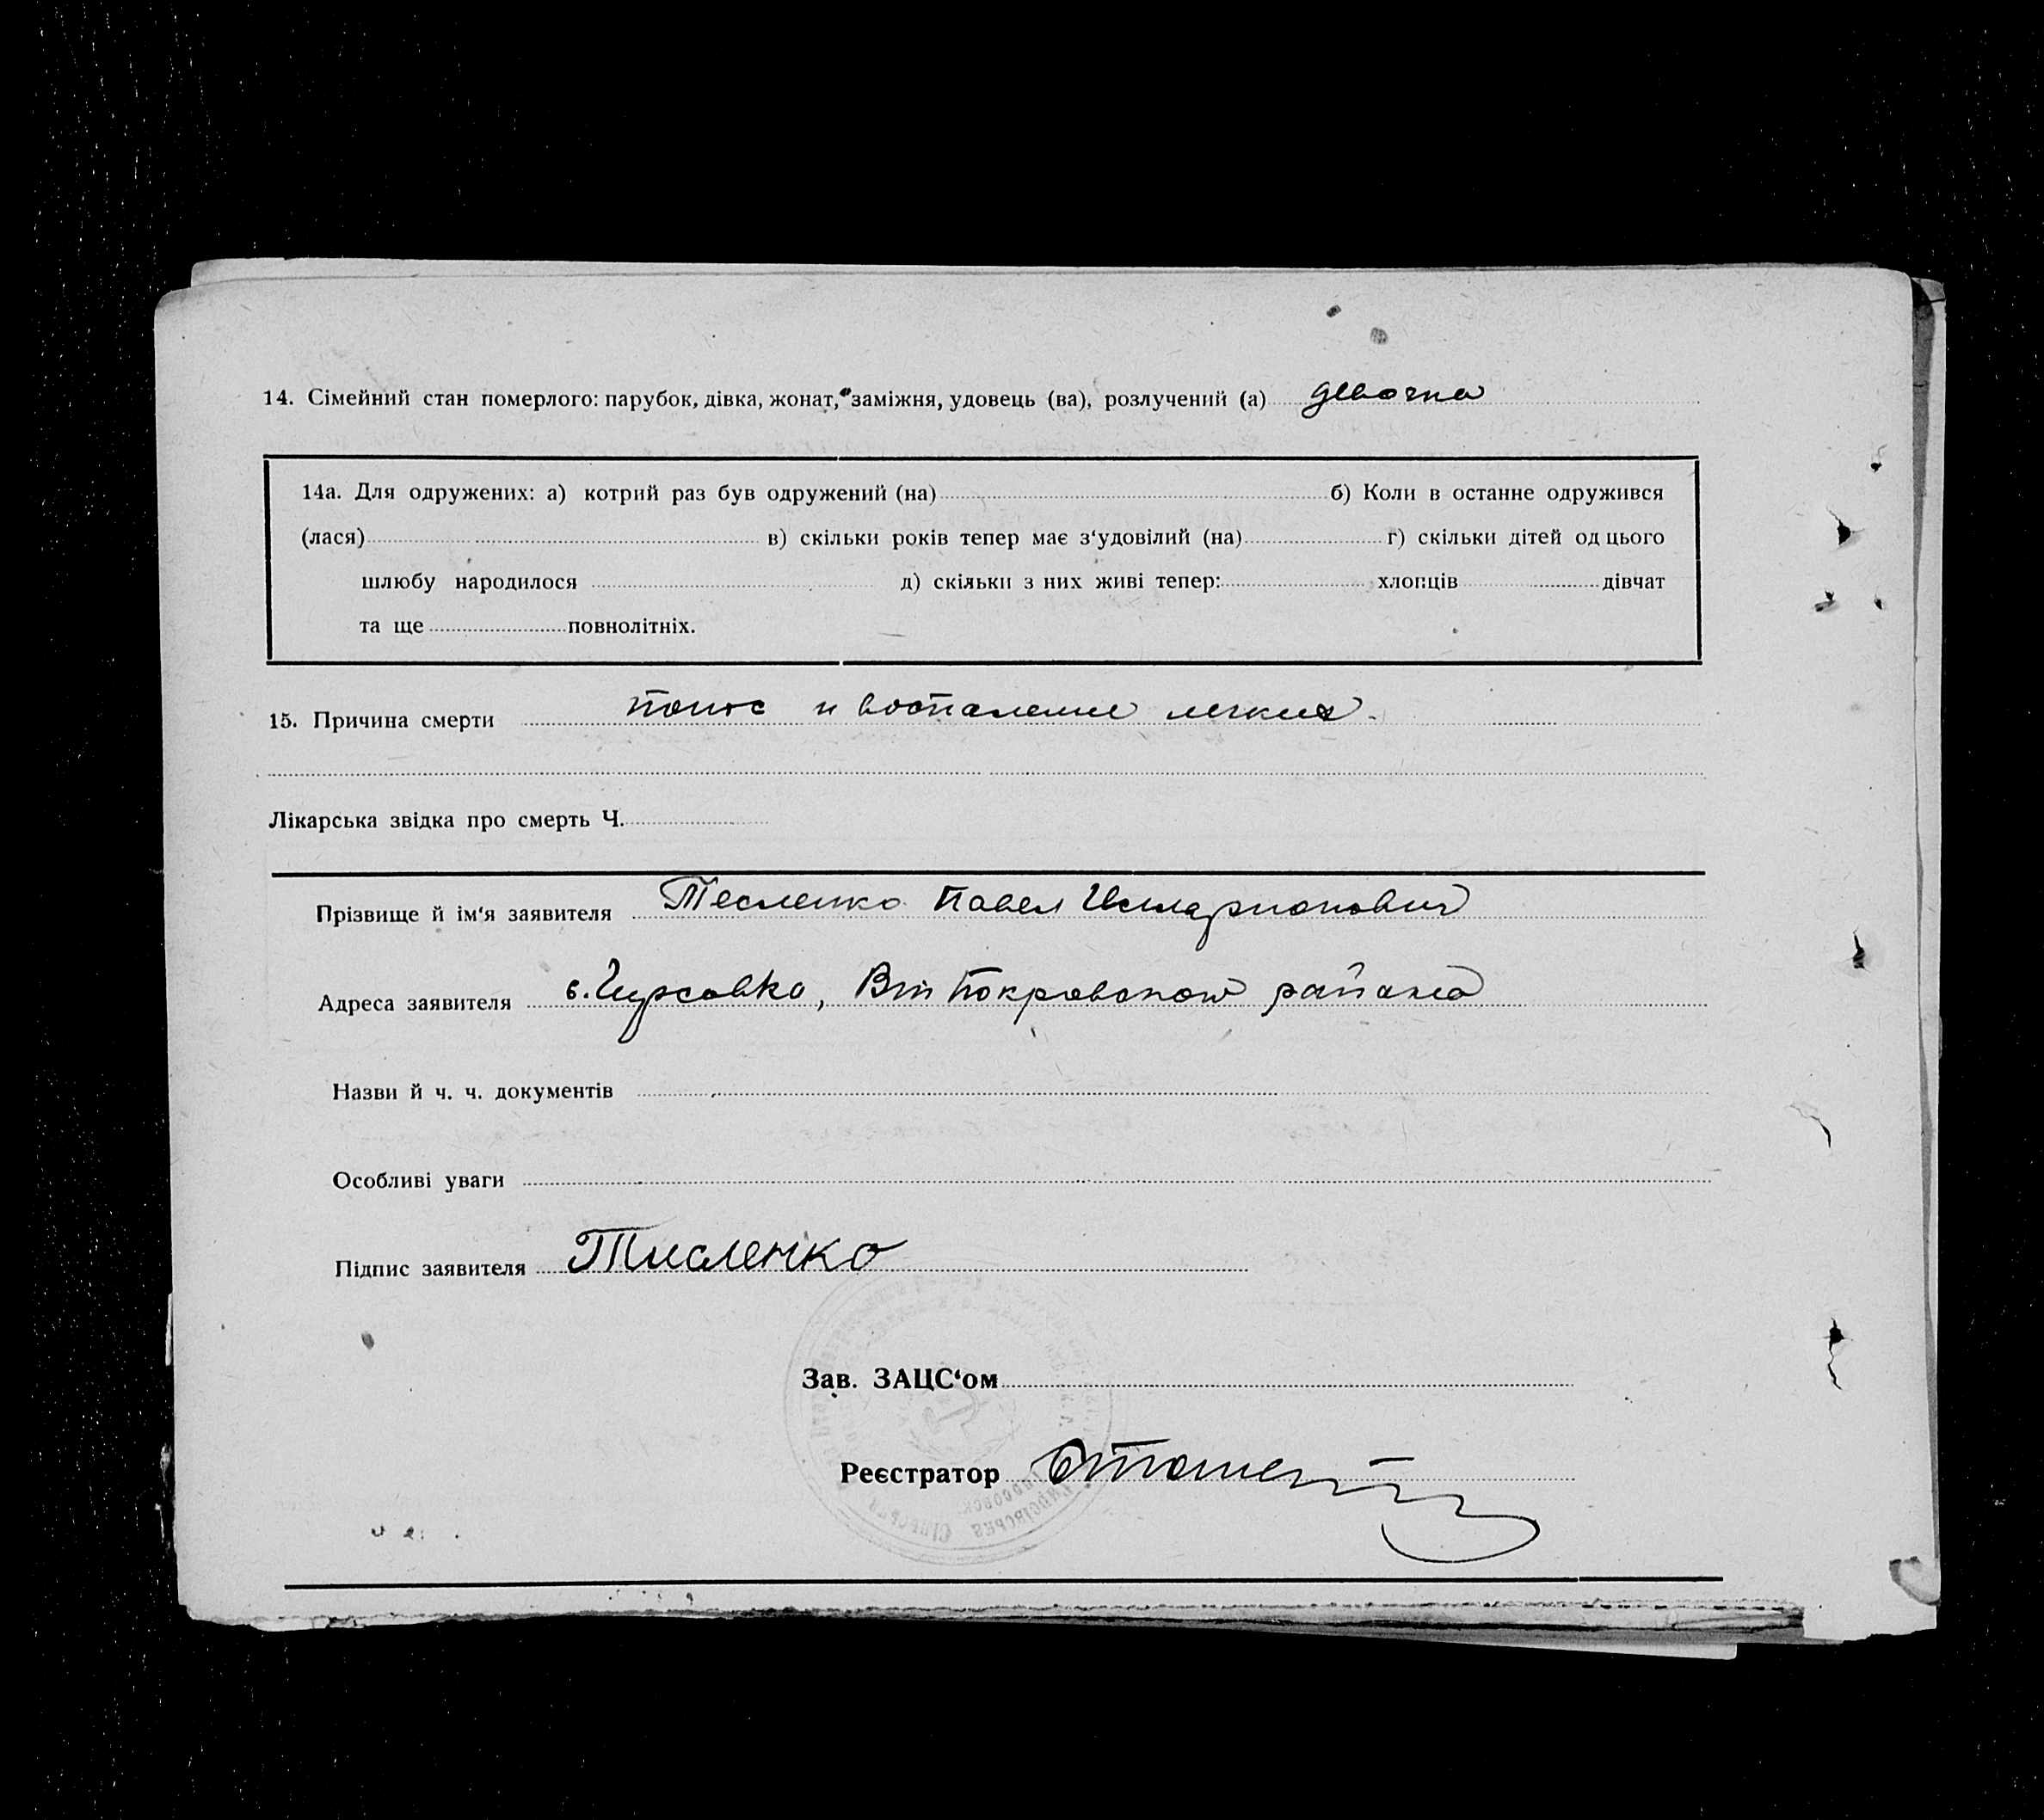 14. Сімейний стан померлого: парубок, дівка, жонат, заміжня, удовець (ва), розлучений (а) девочка
14а. Для одружених: а) котрий раз був одружений (на) б) Коли в останне одружився
(лася) в) скільки років тепер має з‘удовілий (на) г) скільки дітей од цього
шлюбу народилося д) скільки з них живі тепер: хлопців дівчат
та ще повнолітніх.
15. Причина смерти понос и воспаление легких.
Лікарська звідка про смерть Ч.
Прізвище й ім‘я заявителя Тесленко Павел Илларионович
Адреса заявителя Покровского района
Назви й ч. ч. документів
Особливі уваги
Підпис заявителя Тисленко
Зав. ЗАЦС‘ом
Реєстратор